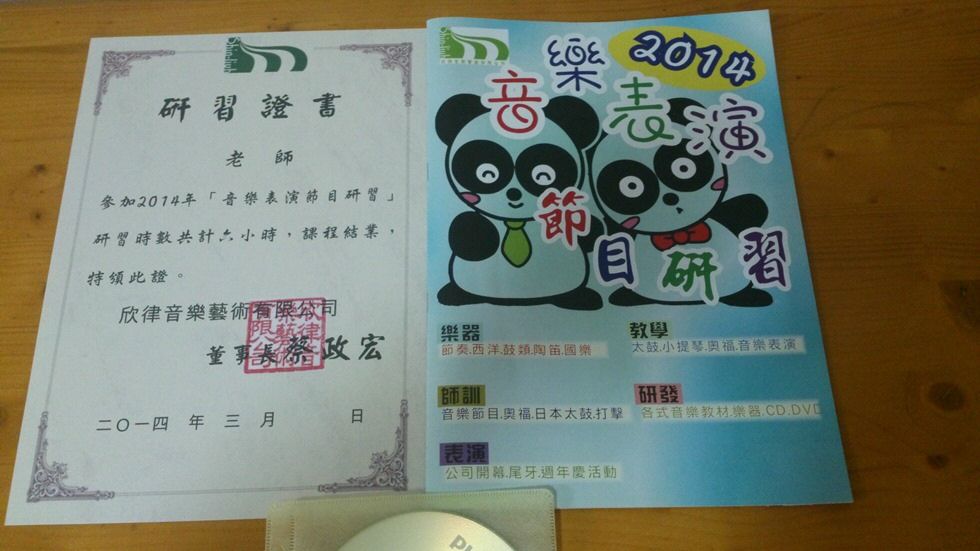 研習證書
老 師
參加2014年「音樂表演節目研習」
研習時數共計六小時，課程結業，
特頒此證。
欣律音樂藝術有限公司
董事長蔡政宏
二〇一四 年 三 月 日
2014
音樂表演
節目研習
樂器
節奏.西洋.鼓類.陶笛.國樂
教學
太鼓.小提琴.奧福.音樂表演
師訓
音樂節目.奧福.日本太鼓.打擊
研發
各式音樂教材.樂器.CD.DVD
表演
公司開幕.尾牙.週年慶活動